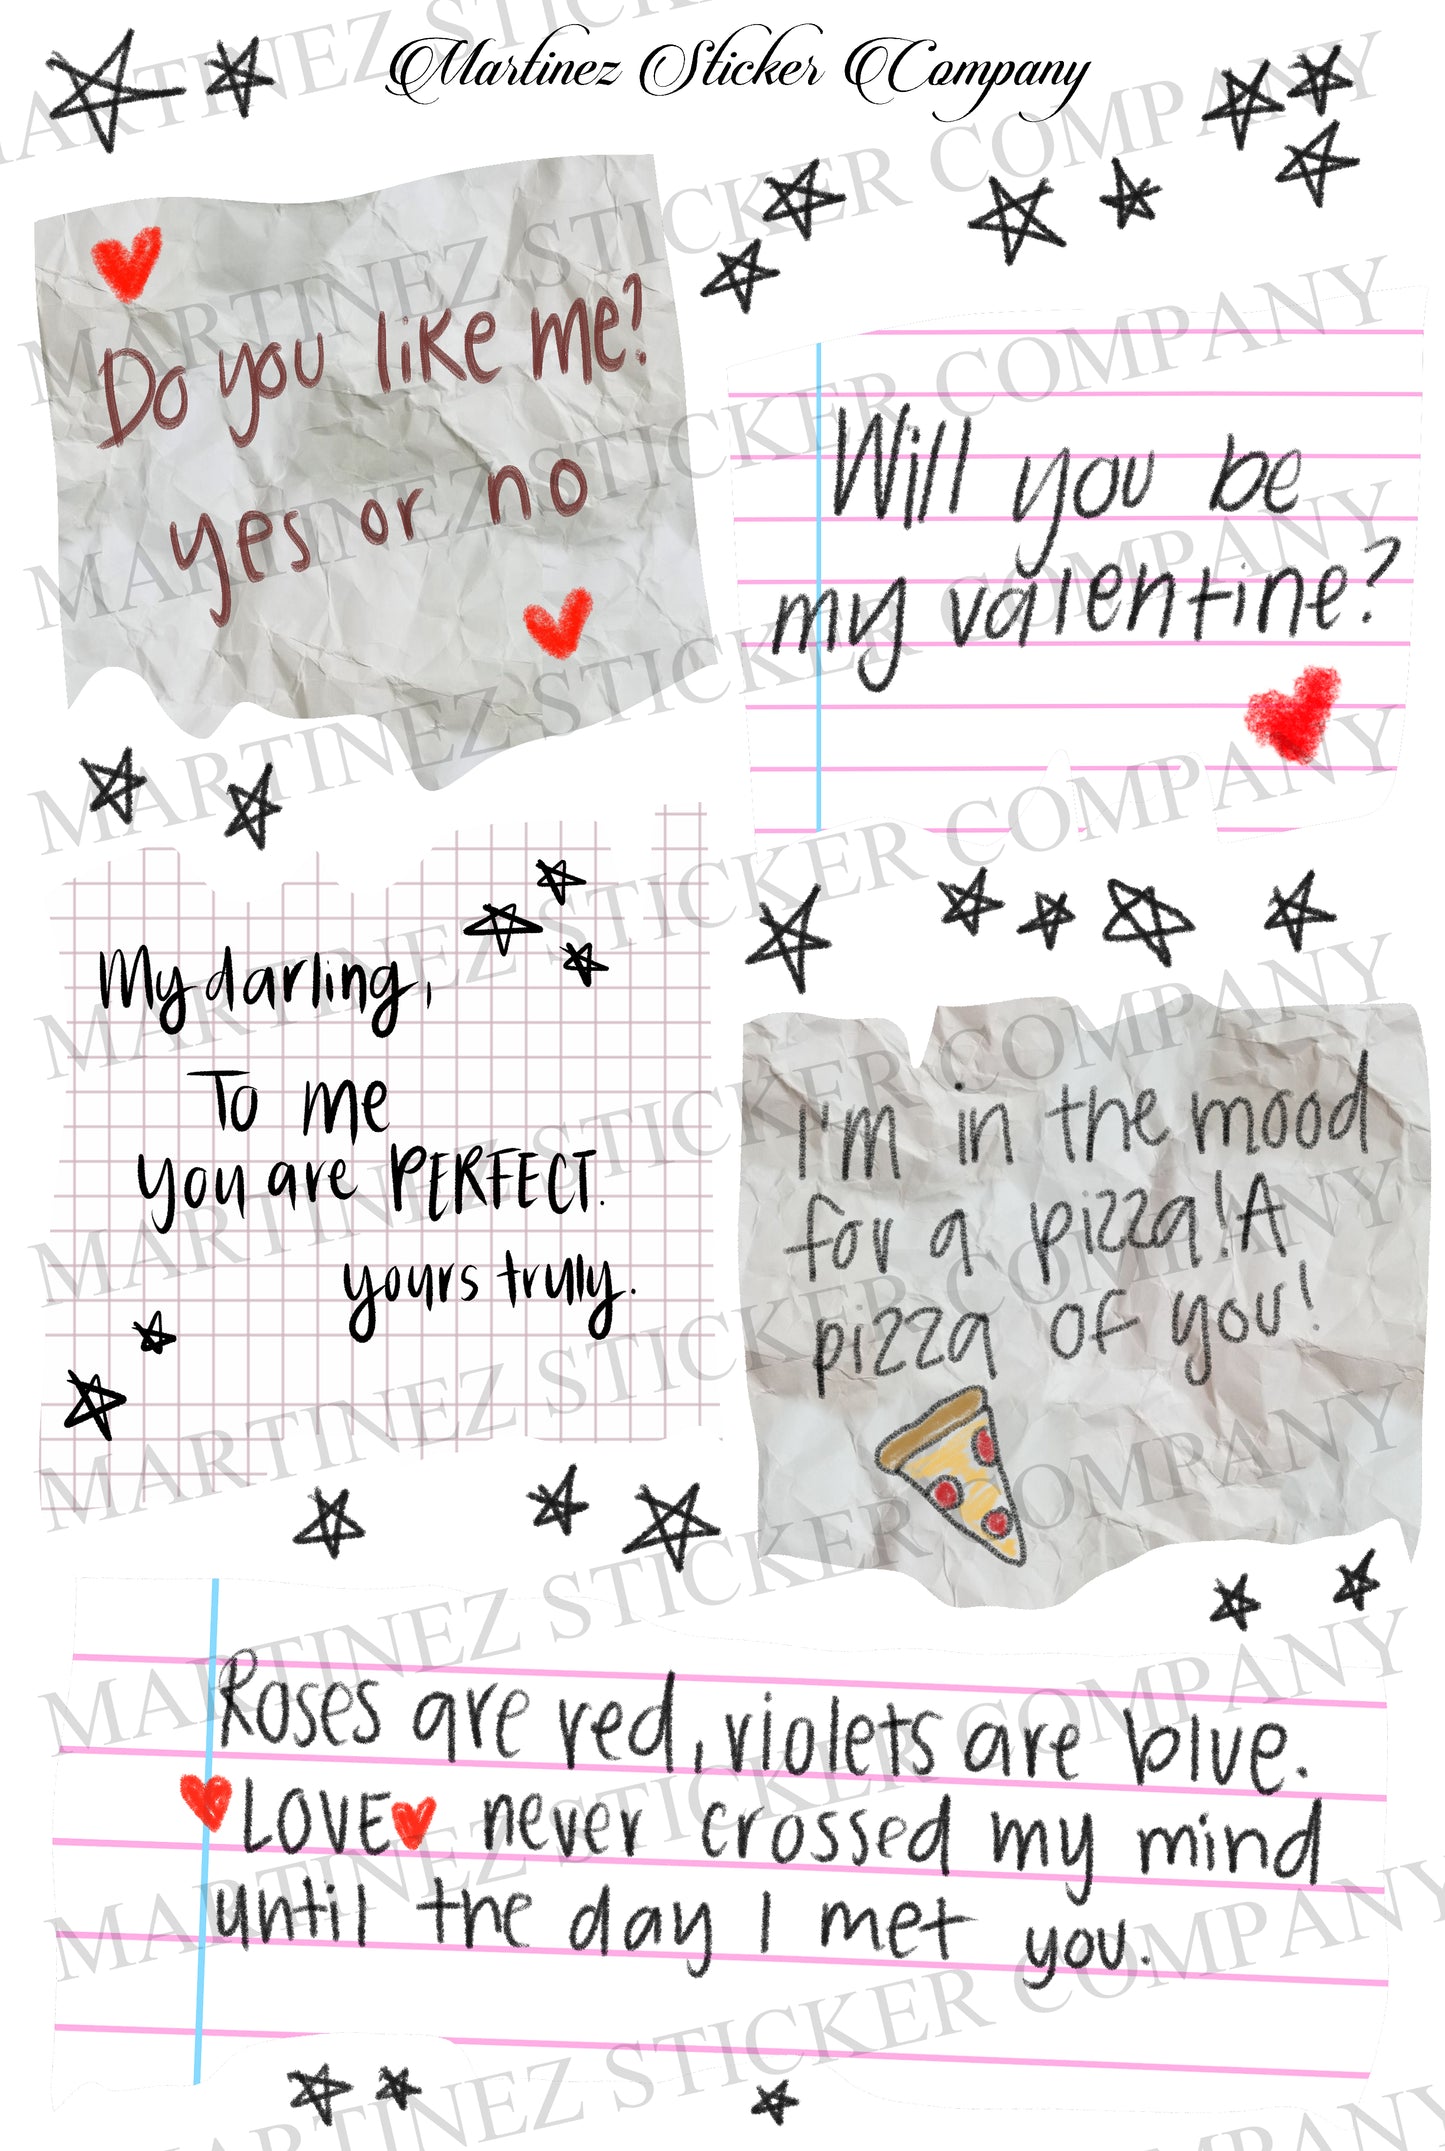 Martinez Sticker Company
Do you like me?
yes or no
Will you be
my valentine?
My darling,
To me
you are PERFECT.
yours truly.
I'm in the mood
for a pizza! A
pizza of you!
Roses are red, violets are blue.
LOVE never crossed my mind
until the day I met you.
MARTINEZ STICKER COMPANY
MARTINEZ STICKER COMPANY
MARTINEZ STICKER COMPANY
MARTINEZ STICKER COMPANY
MARTINEZ STICKER COMPANY
MARTINEZ STICKER COMPANY
MARTINEZ STICKER COMPANY
MARTINEZ STICKER COMPANY
MARTINEZ STICKER COMPANY
MARTINEZ STICKER COMPANY